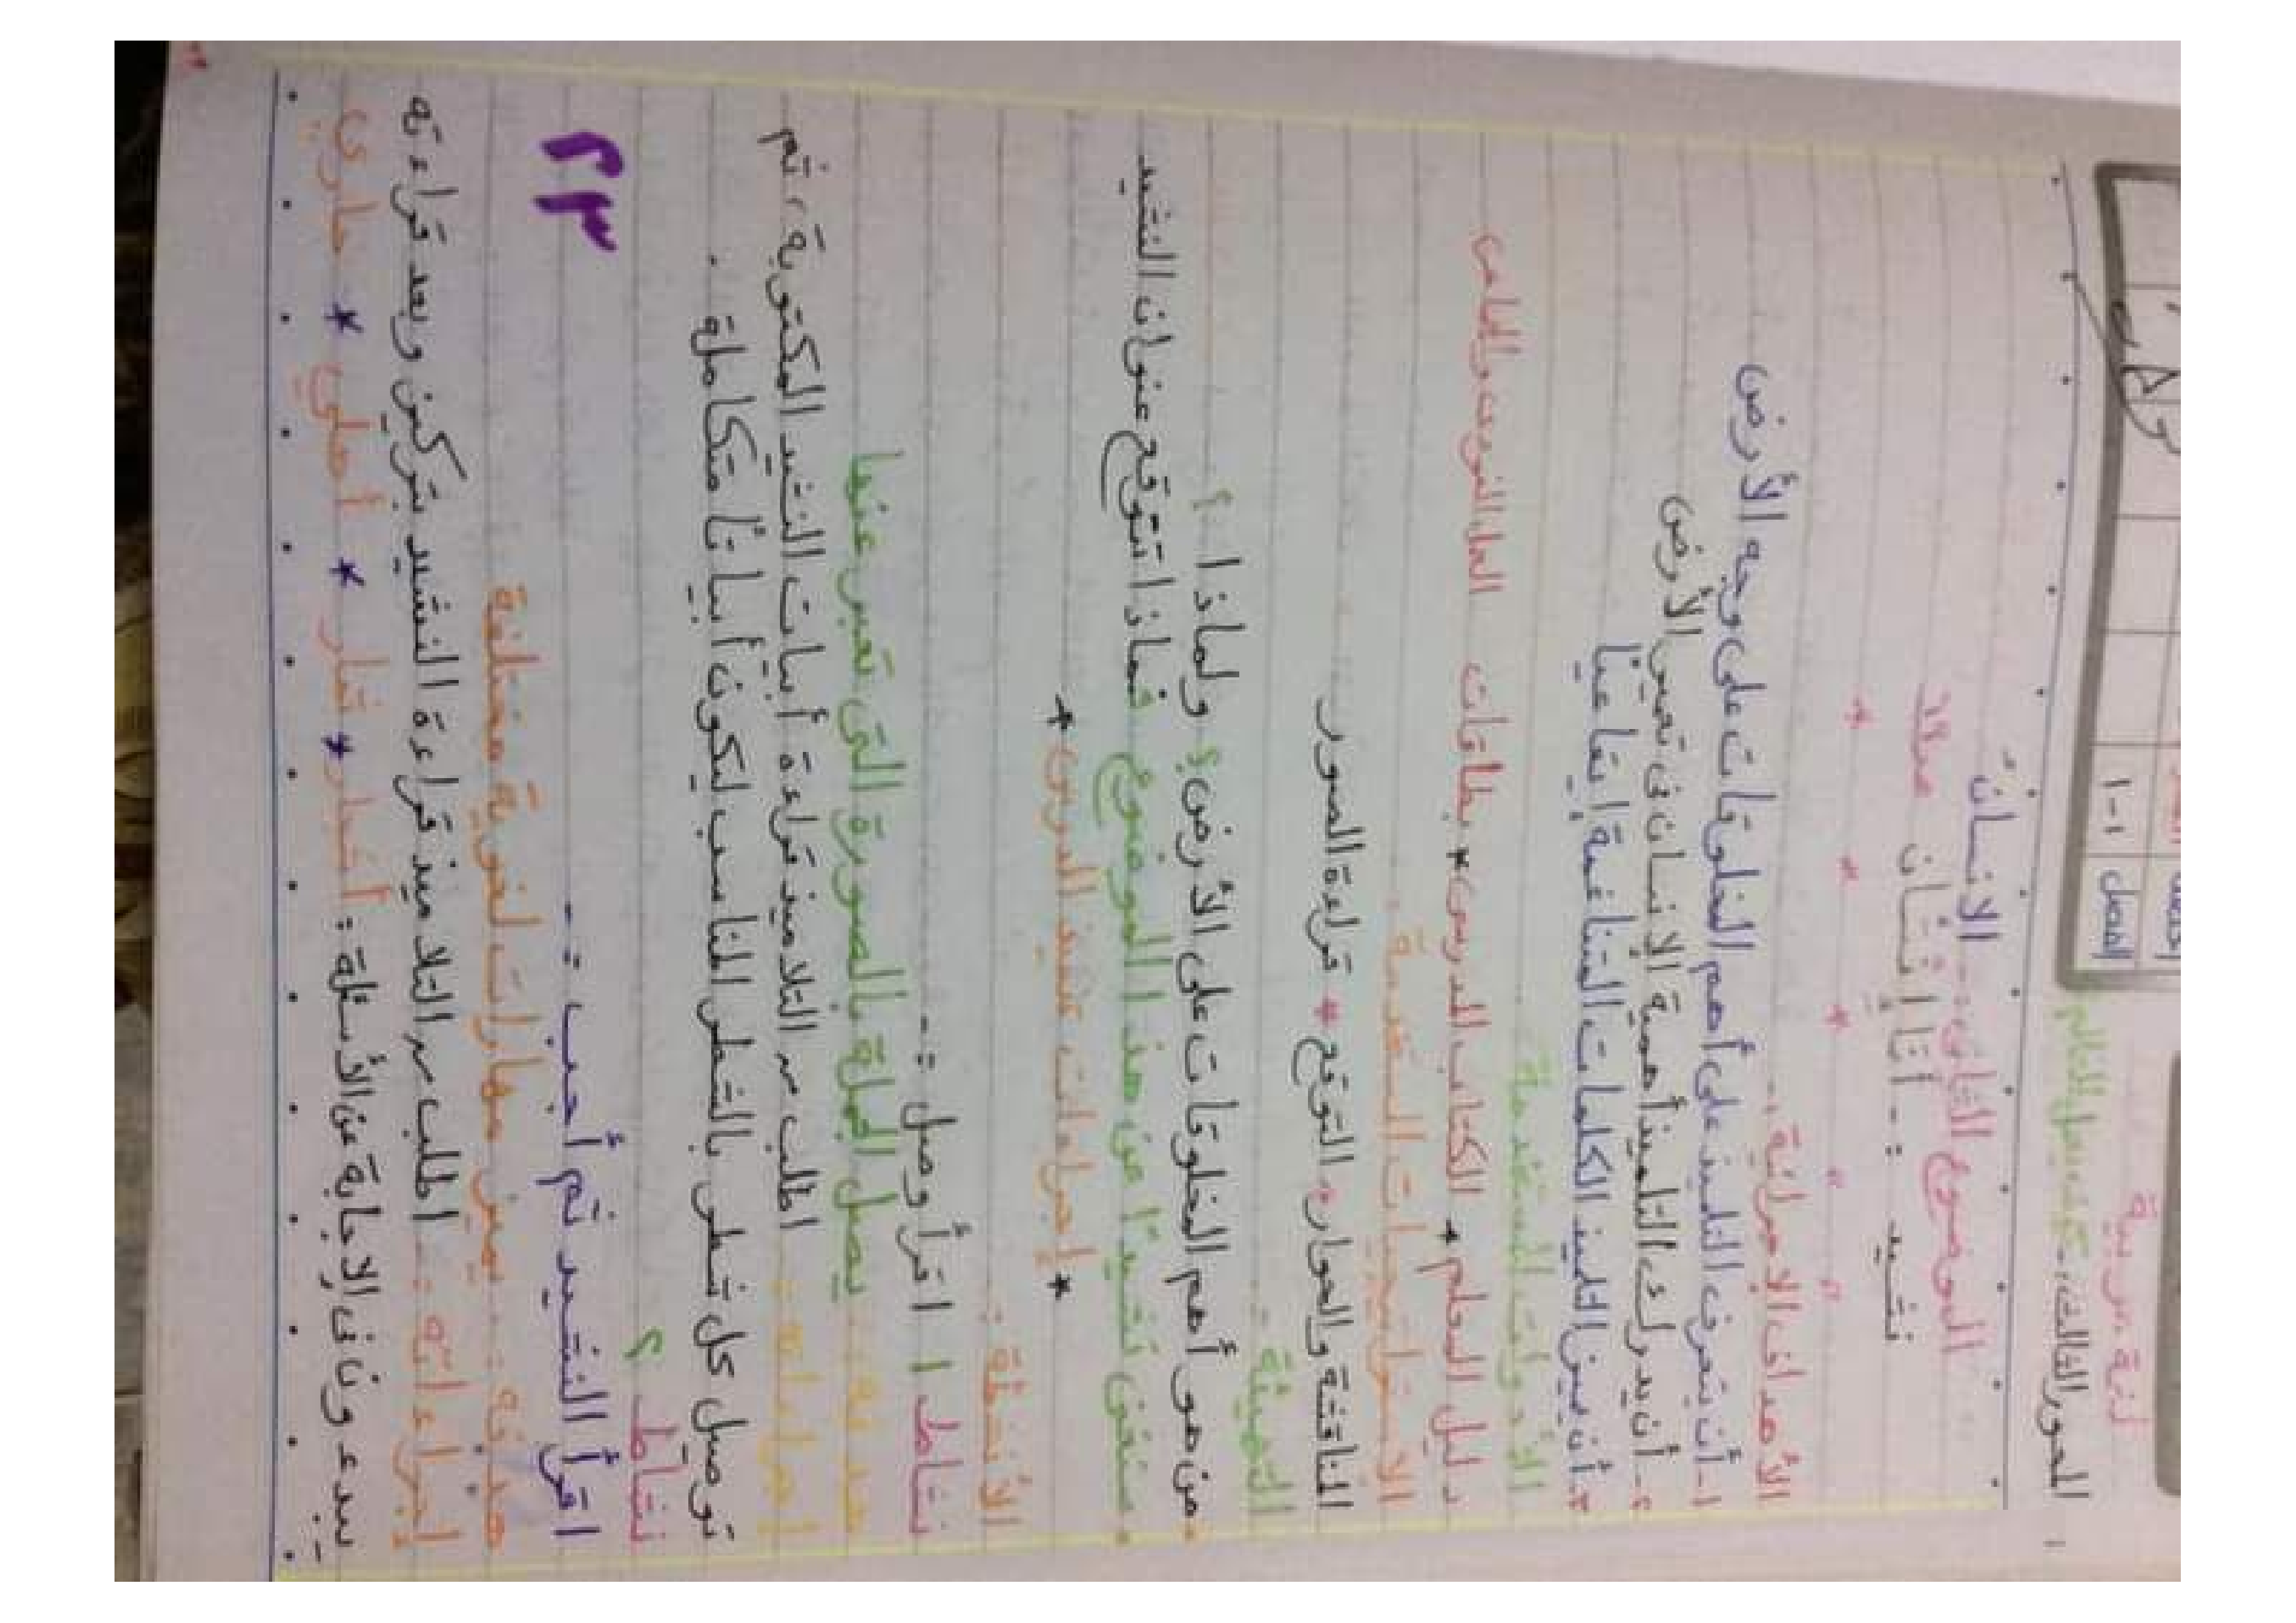 لغة عربية
المحور الثالث - كيف يعمل العالم
الفصل ١-١
الموضوع الثانى :- الإنسان
نشيد :- أنا إنسان
الأهداف الإجرائية :-
١- أن يتعرف التلميذ على أهم المخلوقات على وجه الأرض
٢- أن يدرك التلميذ أهمية الإنسان فى تعمير الأرض
٣- أن يميز التلميذ الكلمات المتناغمة إيقاعيًا
الأدوات المستخدمة
دليل المعلم * الكتاب المدرسى * بطاقات العمل الفردى والجماعى
الاستراتيجيات المستخدمة
المناقشة والحوار * التوقع * قراءة الصور
التهيئة :-
من هو أهم المخلوقات على الأرض؟ ولماذا ؟
ستغنى نشيدًا عن هذا الموضوع فماذا تتوقع عنوان النشيد
* إجراءات تنفيذ الدرس *
الأنشطة :-
نشاط ١ اقرأ وصل :-
هدفه :- يصل الجملة بالصورة التى تعبر عنها
إجراءاته :- اطلب من التلاميذ قراءة أبيات النشيد المكتوبة، ثم
توصيل كل شطر بالشطر المناسب ليكون أبياتًا متكاملة .
نشاط ٢
اقرأ النشيد ثم أجب :-
هدفه :- يميز مهارات لغوية مختلفة
إجراءاته :- اطلب من التلاميذ قراءة النشيد بتركيز وبعد قراءته
يبدءون فى الإجابة عن الأسئلة :
٢٣